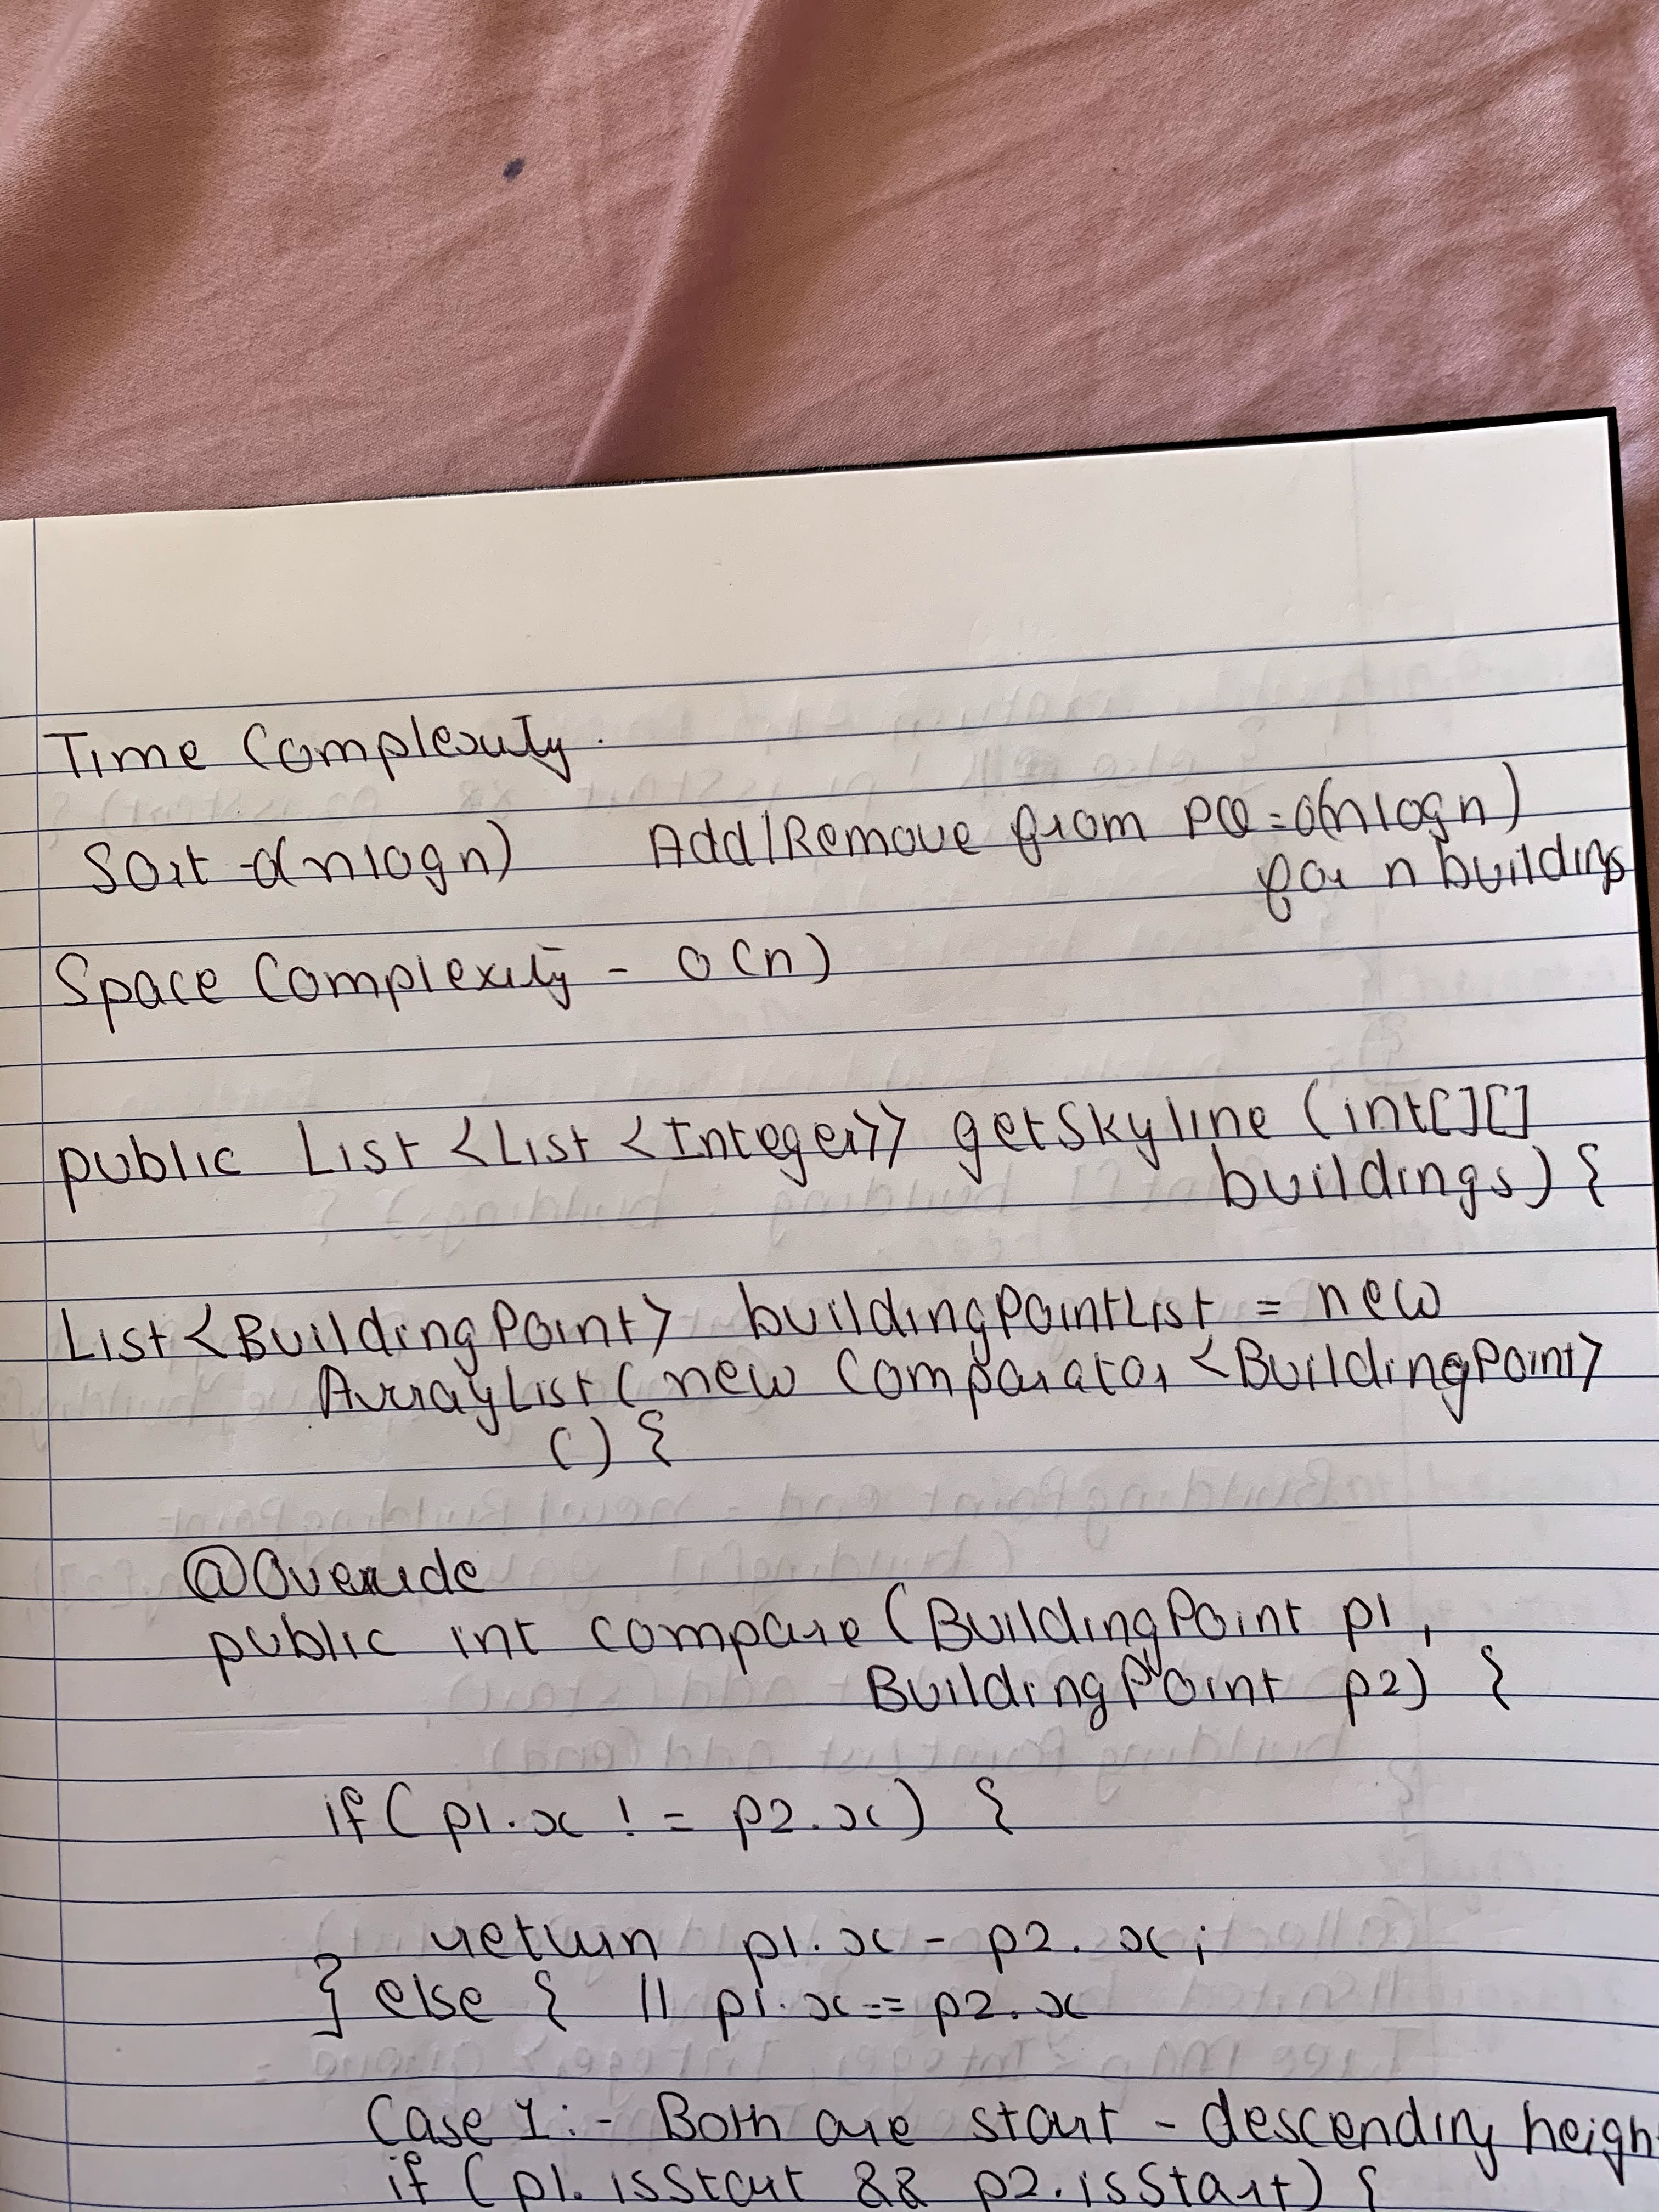 Time Complexity.
Sort - O(nlogn) Add/Remove from PQ = O(nlogn)
for n buildings
Space Complexity - O(n)
public List<List<Integer>> getSkyline (int[][]
buildings) {
List<BuildingPoint> buildingPointList = new
ArrayList(new Comparator<BuildingPoint>
() {
@Override
public int compare (BuildingPoint p1,
BuildingPoint p2) {
if (p1.x != p2.x) {
return p1.x - p2.x;
} else { // p1.x == p2.x
Case 1:- Both are start - descending heigh
if (p1.isStart && p2.isStart) {